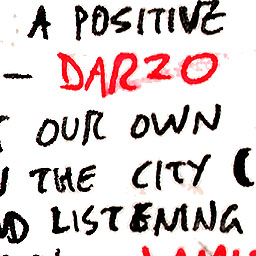 A POSITIVE
— DARZO
OUR OWN
THE CITY (
LISTENING